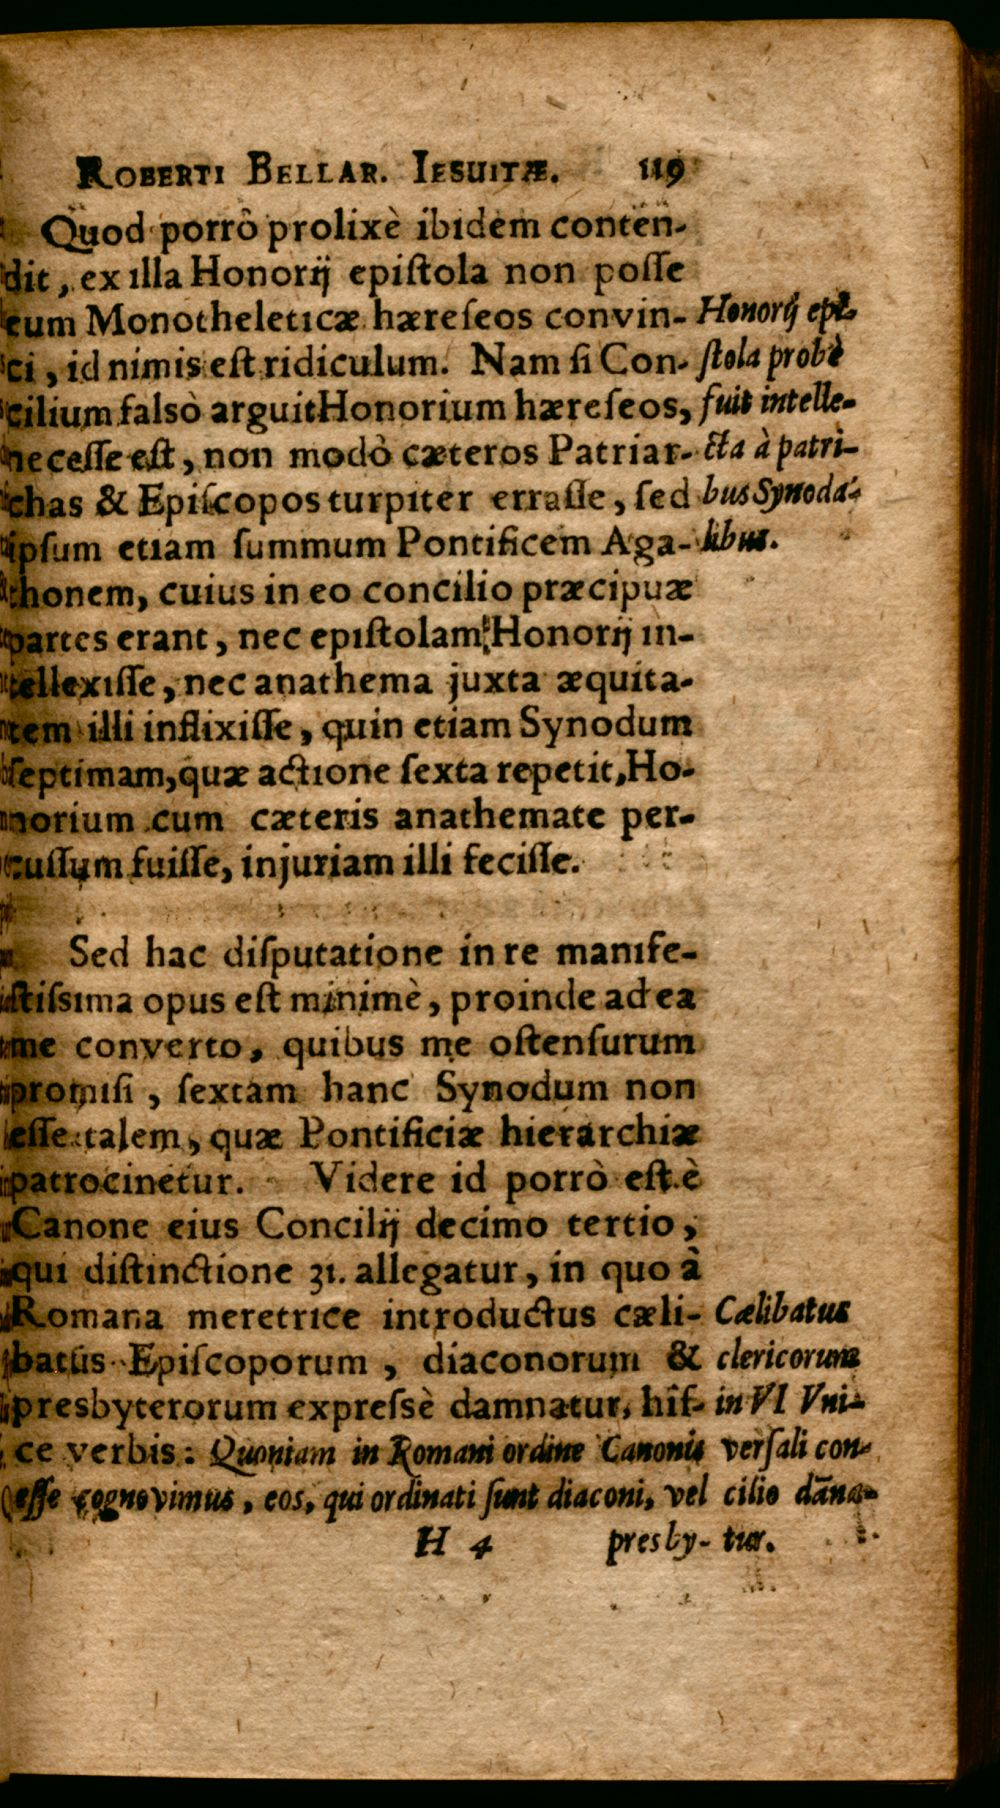 ROBERTI BELLAR. IESUITÆ. 119
Quod porrò prolixè ibidem conten-
dit, ex illa Honorij epiſtola non poſſe
eum Monotheleticæ hæreſeos convin-
ci, id nimis eſt ridiculum. Nam ſi Con-
cilium falsò arguit Honorium hæreſeos,
neceſſe eſt, non modò cæteros Patriar-
chas & Epiſcopos turpiter erraſſe, ſed
ipſum etiam ſummum Pontificem Aga-
thonem, cuius in eo concilio præcipuæ
partes erant, nec epiſtolam Honorij in-
tellexiſſe, nec anathema juxta æquita-
tem illi inflixiſſe, quin etiam Synodum
ſeptimam, quæ actione ſexta repetit, Ho-
norium cum cæteris anathemate per-
cuſſum fuiſſe, injuriam illi feciſſe.
Honorij epi-
ſtola probè
fuit intelle-
cta à patri-
bus Synoda-
libus.
Sed hac diſputatione in re manife-
ſtiſsima opus eſt minimè, proinde ad ea
me converto, quibus me oſtenſurum
promiſi, ſextam hanc Synodum non
eſſe talem, quæ Pontificiæ hierarchiæ
patrocinetur. Videre id porrò eſt è
Canone eius Concilij decimo tertio,
qui diſtinctione 31. allegatur, in quo à
Romana meretrice introductus cæli-
batus Epiſcoporum, diaconorum &
presbyterorum expreſsè damnatur, hiſ-
ce verbis: Quoniam in Romani ordine Canonis
eſſe cognovimus, eos, qui ordinati ſunt diaconi, vel
Cælibatus
clericorum
in VI Vni-
verſali con-
cilio dãna-
tur.
H 4 presby-